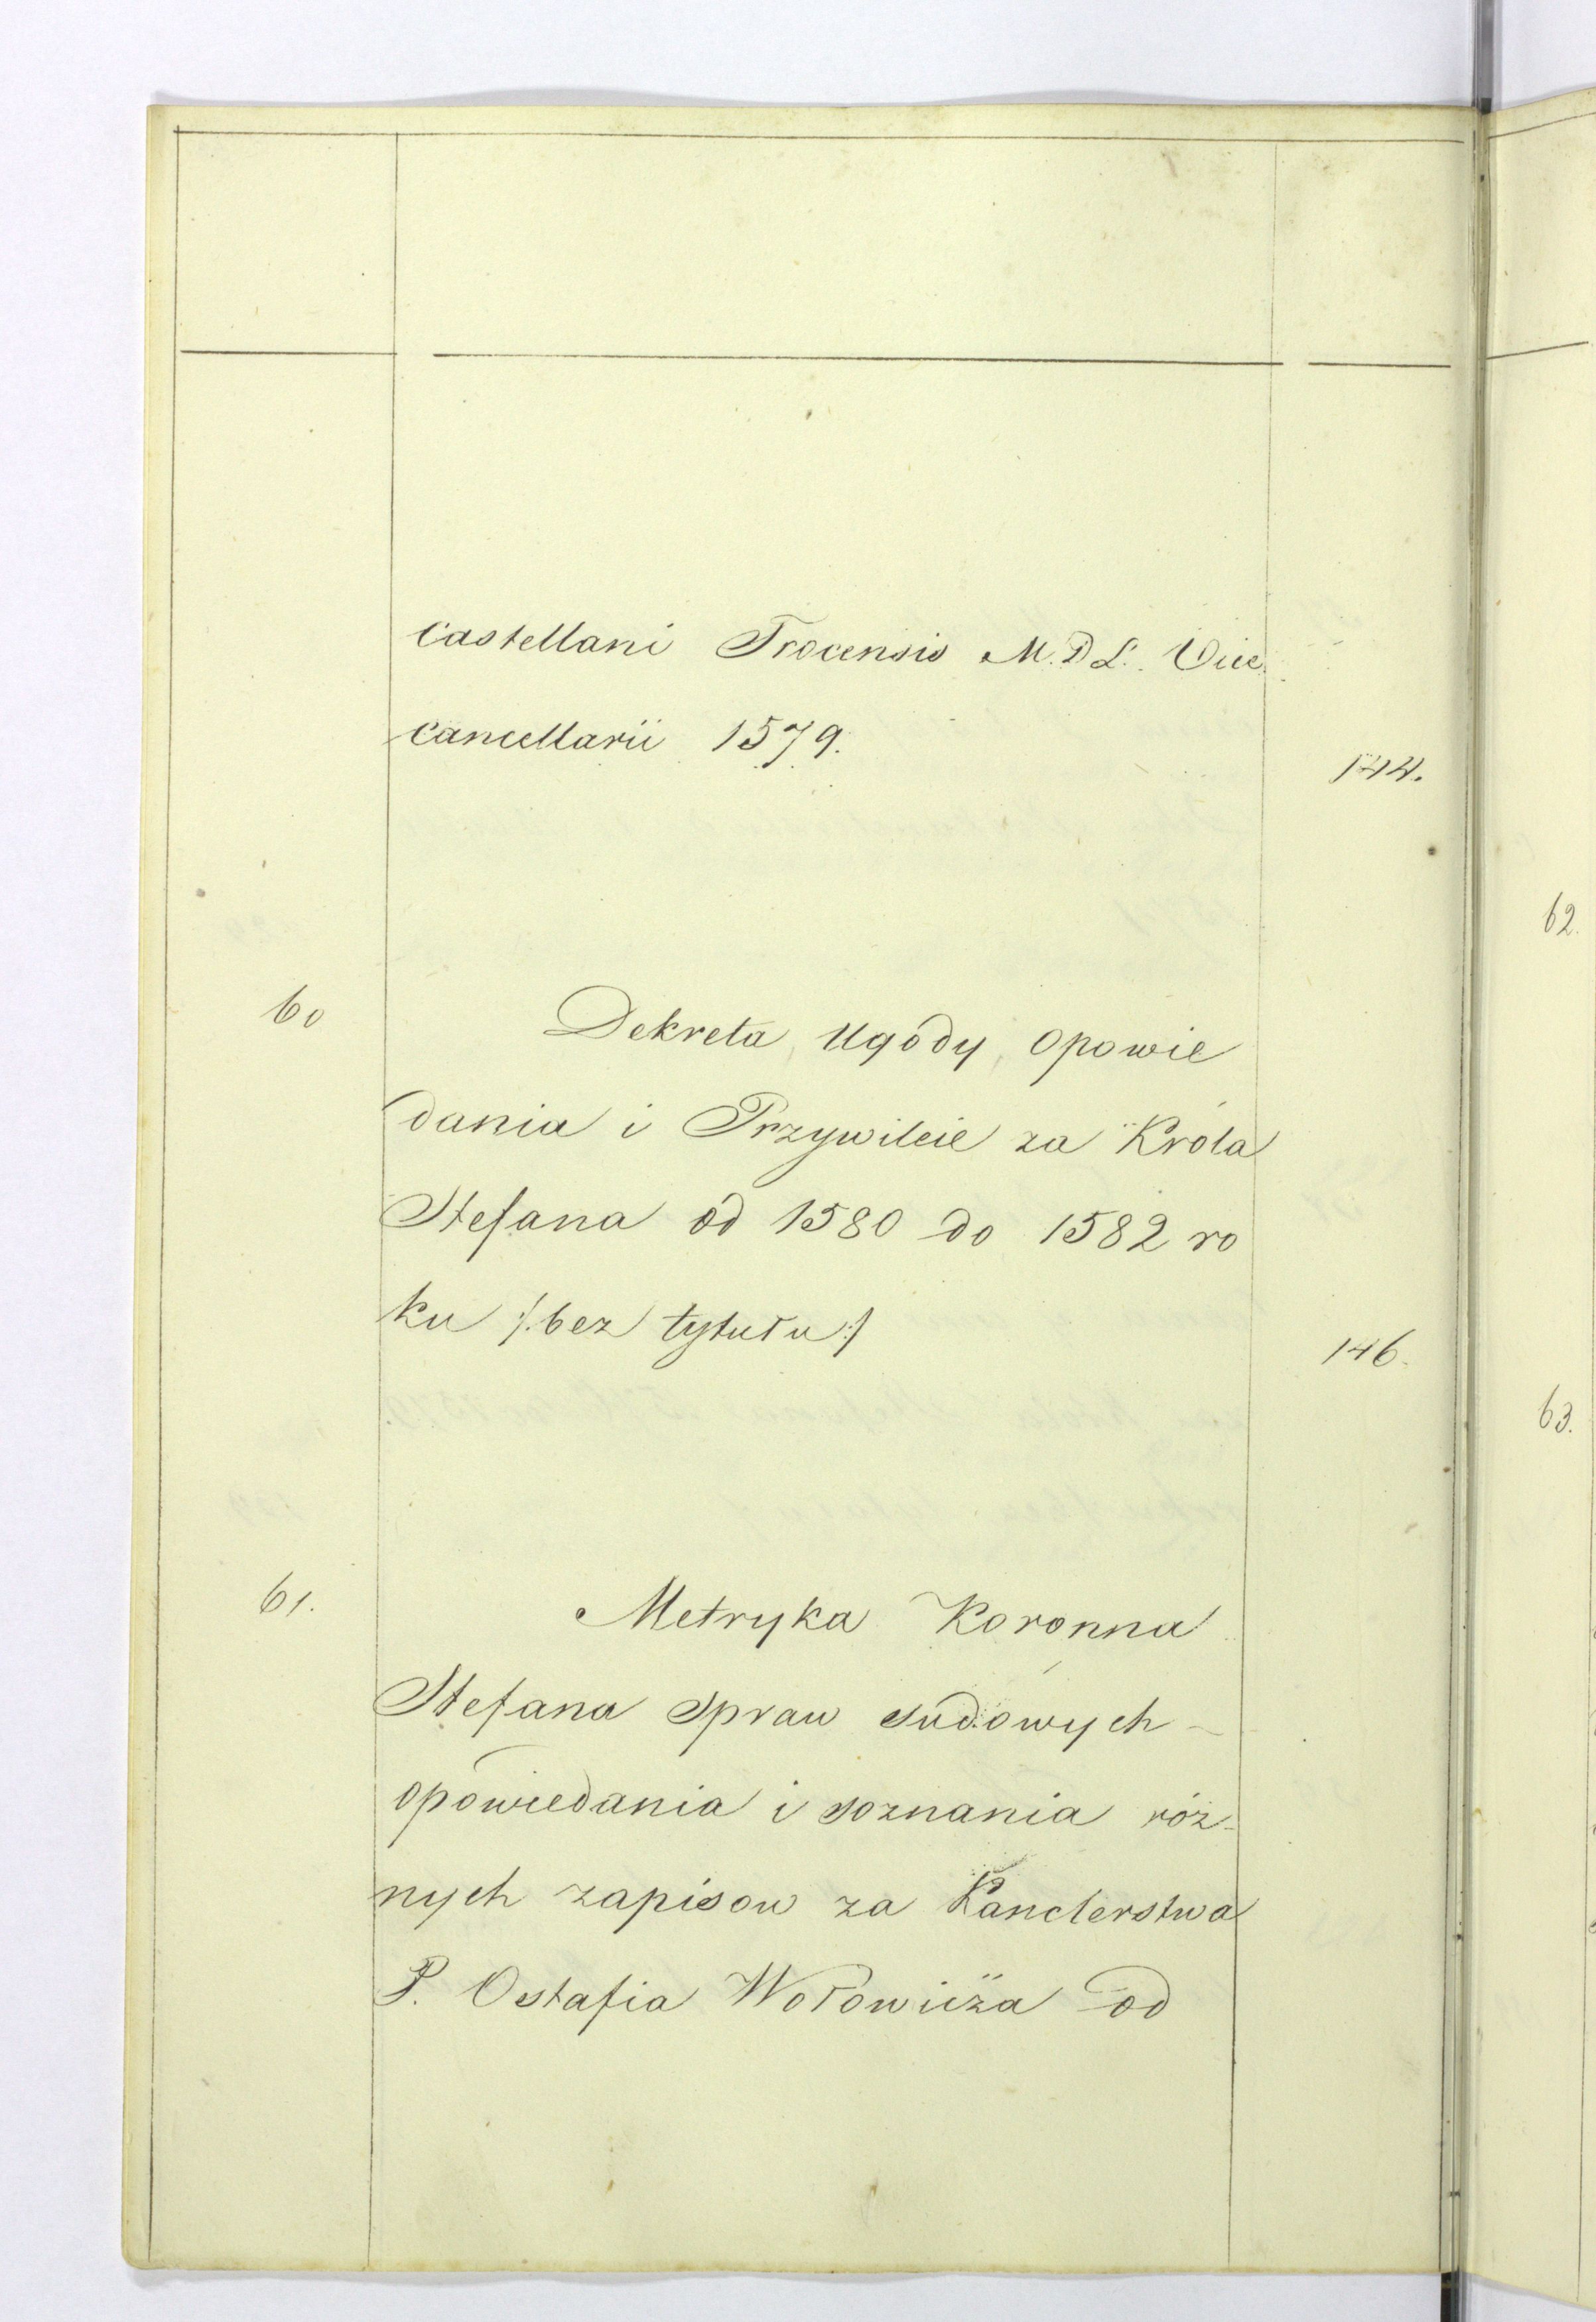 Castellani Trocensis M. D L. Vice
Cancellarii 1579.
144.
60
Dekreta, Ugody, Opowie
dania i Przywileie za Króla
Stefana od 1580 do 1582 ro
ku /:bez tytułu:/
146.
61.
Metryka Koronna
Stefana Spraw sudowych
opowiedania i soznania róż-
nych zapisow za Kanclerstwa
P. Ostafia Wołowicża od
62.
63.